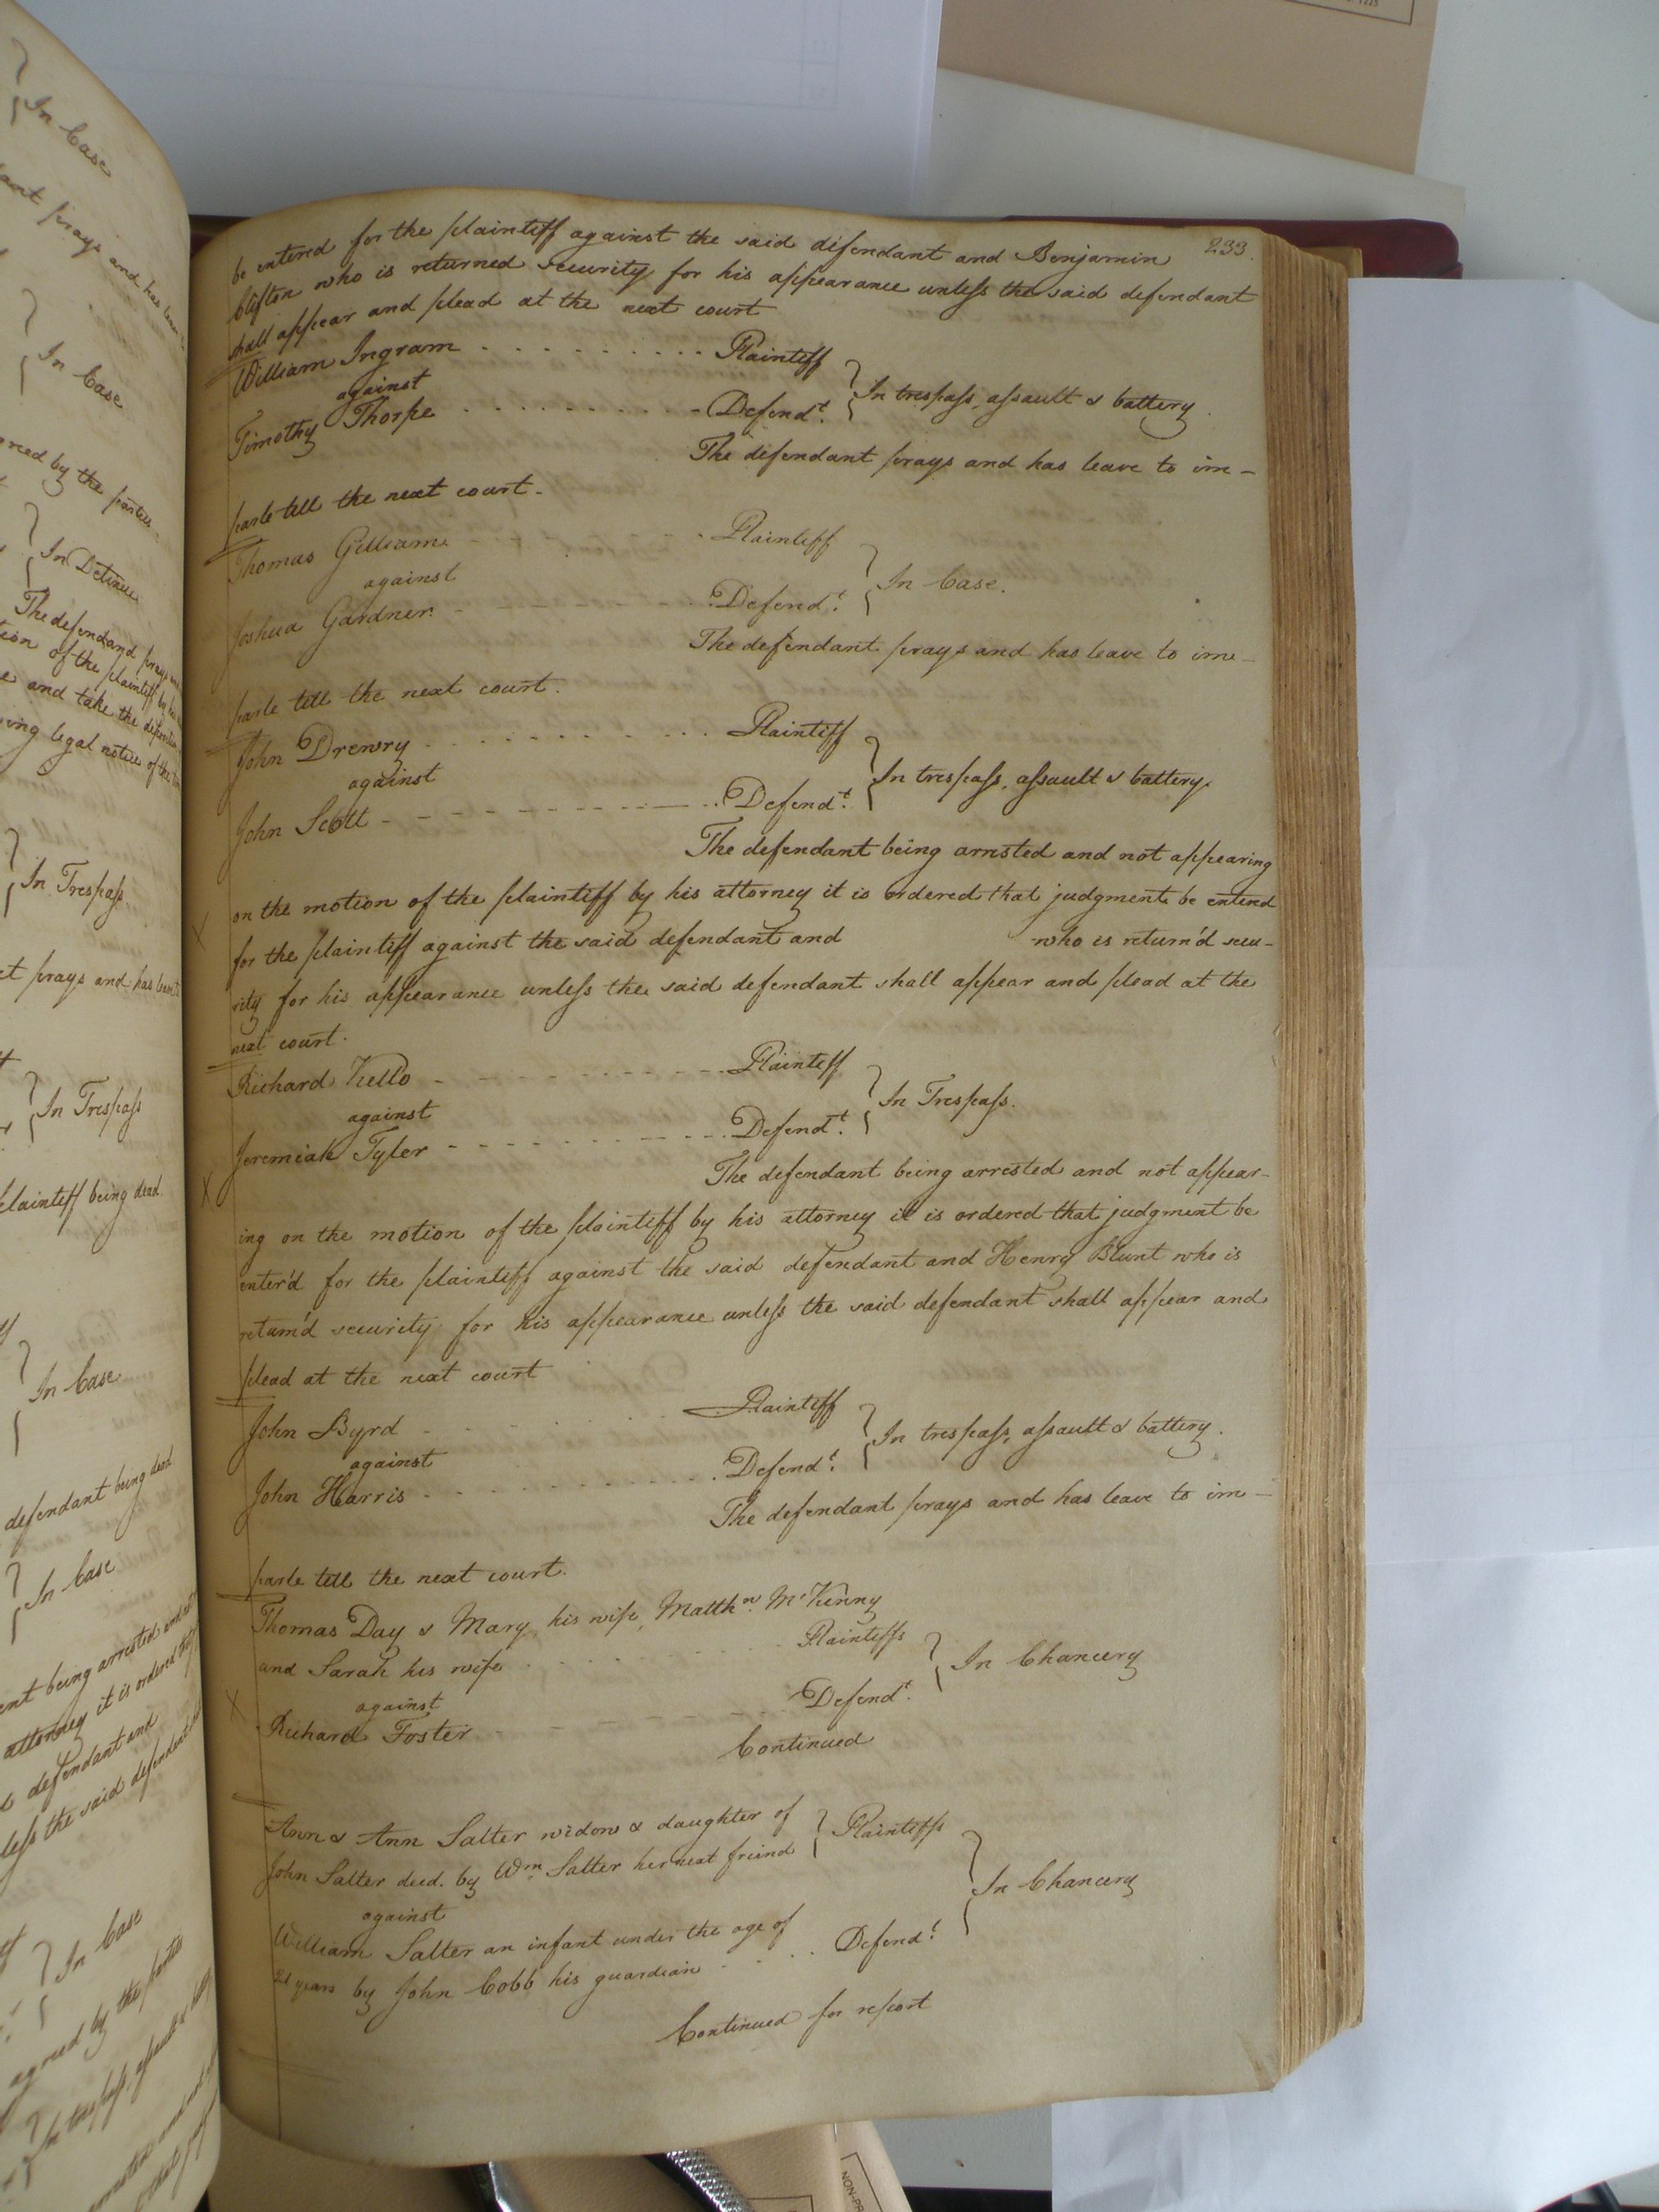 233.
be entered for the plaintiff against the said defendant and Benjamin
Clifton who is returned security for his appearance unless the said defendant
shall appear and plead at the next court
William Ingram - - - - - - - - - Plaintiff
against
In trespass, assault & battery.
Timothy Thorpe - - - - - - - - - Defendt.
The defendant prays and has leave to im-
parle till the next court.
Thomas Gilliam - - Plaintiff
against
In Case.
Joshua Gardner - - - - Defendt.
The defendant prays and has leave to im-
parle till the next court.
John Drewry - - - - - - - - - Plaintiff
against
In trespass, assault & battery.
John Scott - - - - - - - - - Defendt.
The defendant being arrested and not appearing
on the motion of the plaintiff by his attorney it is ordered that judgment be entered
for the plaintiff against the said defendant and who is return'd secu-
rity for his appearance unless the said defendant shall appear and plead at the
next court.
Richard Kello - - - - - - - - - Plaintiff
against
In Trespass.
Jeremiah Tyler - - - - - - - - - Defendt.
The defendant being arrested and not appear-
ing on the motion of the plaintiff by his attorney it is ordered that judgment be
enter'd for the plaintiff against the said defendant and Henry Blunt who is
return'd security for his appearance unless the said defendant shall appear and
plead at the next court
John Byrd - - - - - - Plaintiff
against
In trespass, assault & battery.
John Harris - - - - - - - - - Defendt.
The defendant prays and has leave to im-
parle till the next court.
Thomas Day & Mary his wife, Matthw. McKinny
and Sarah his wife - - - - - - Plaintiffs
against
In Chancery
Richard Foster - - - - - - - Defendt.
Continued
Ann & Ann Salter widow & daughter of
John Salter decd. by Wm. Salter her next friend Plaintiffs
against
In Chancery
William Salter an infant under the age of
21 years by John Cobb his guardian - - - Defendt.
Continued for report
In Case
In Case
In Detinue
In Trespass
In Trespass
plaintiff being dead.
In Case
defendant being dead
In Case
In Case